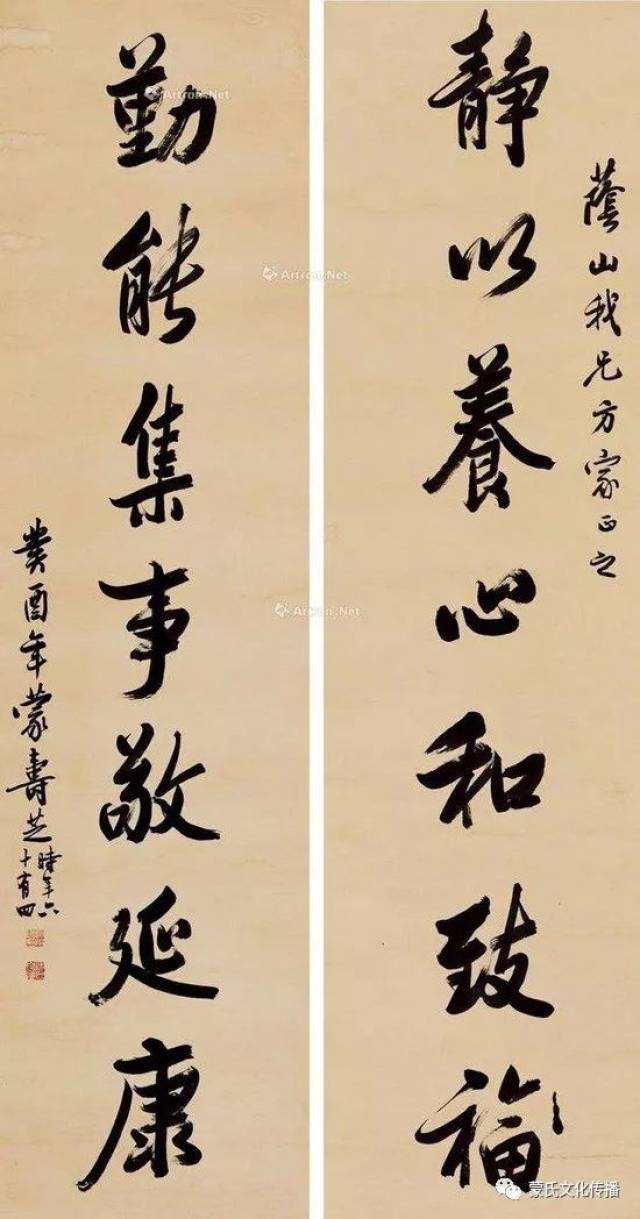 蔭山我兄方家正之
静以養心和致福
勤能集事敬延康
癸酉年蒙壽芝時年六十有四
Artron.Net
Artron.Net
Artron.Net
Artron.Net
蒙氏文化传播